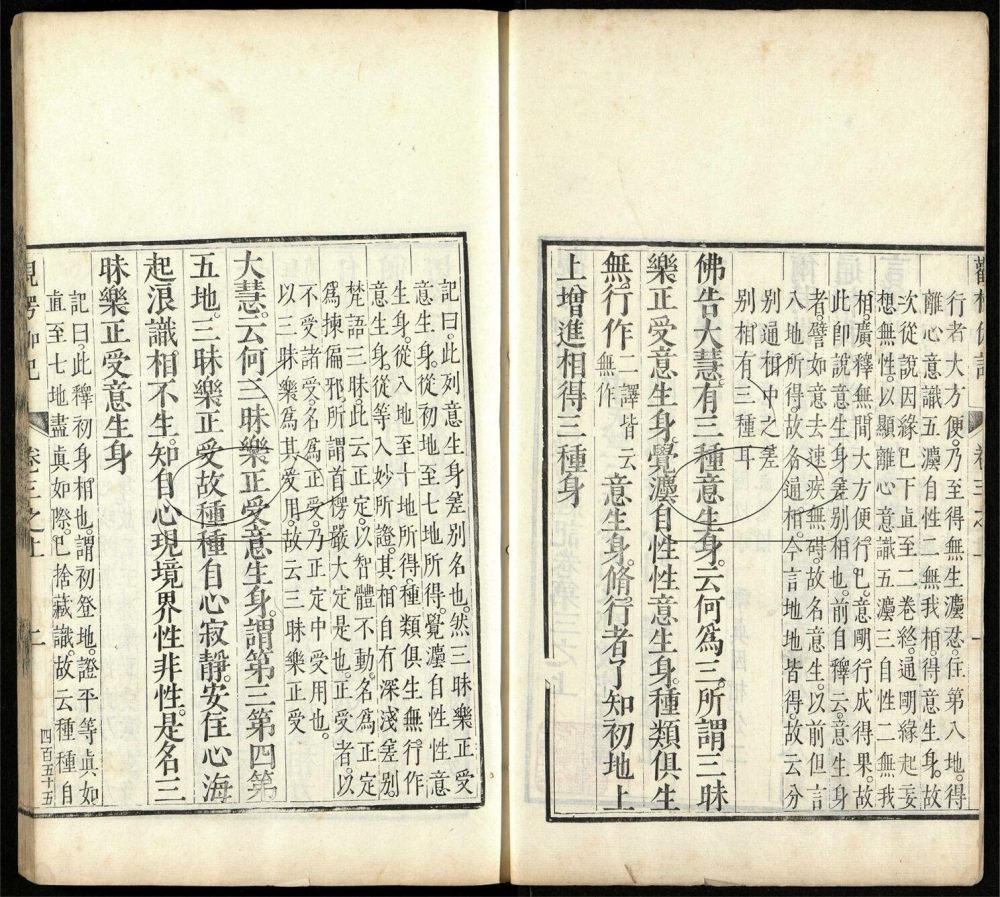 行者大方便。乃至得無生灋忍。住第八地。得
離心意識五灋自性二無我相。得意生身。故
次從說因緣。已下直至二卷終。通明緣起妄
想無性。以顯離心意識五灋三自性二無我
相。廣釋無間大方便行已。意明行成得果。故
此卽說意生身差別相也。前自釋云。意生身
者。譬如意去速疾無碍。故名意生。以前但言
八地所得。故名通相。今言地地皆得。故云分
別通相中之差
別相有三種耳
佛告大慧。有三種意生身。云何為三。所謂三昧
樂正受意生身。覺灋自性性意生身。種類俱生
無行作二譯皆云無作意生身。脩行者了知初地上
上增進相得三種身
記曰。此列意生身差別名也。然三昧樂正受
意生身。從初地至七地所得。覺灋自性性意
生身。從八地至十地所得。種類俱生無行作
意生身。從等入妙所證。其相自有深淺差別
梵語三昧。此云正定。以智體不動。名為正定
為揀偏邪。所謂首楞嚴大定是也。正受者。以
不受諸受。名為正受。乃正定中受用也。
以三昧樂為其受用。故云三昧樂正受
大慧。云何三昧樂正受意生身。謂第三第四第
五地。三昧樂正受故。種種自心寂靜。安住心海
起浪識相不生。知自心現境界性非性。是名三
昧樂正受意生身
記曰。此釋初身相也。謂初登地。證平等眞如
直至七地盡眞如際。已捨藏識。故云種種自
觀楞伽記
卷三之上
二
四百五十五